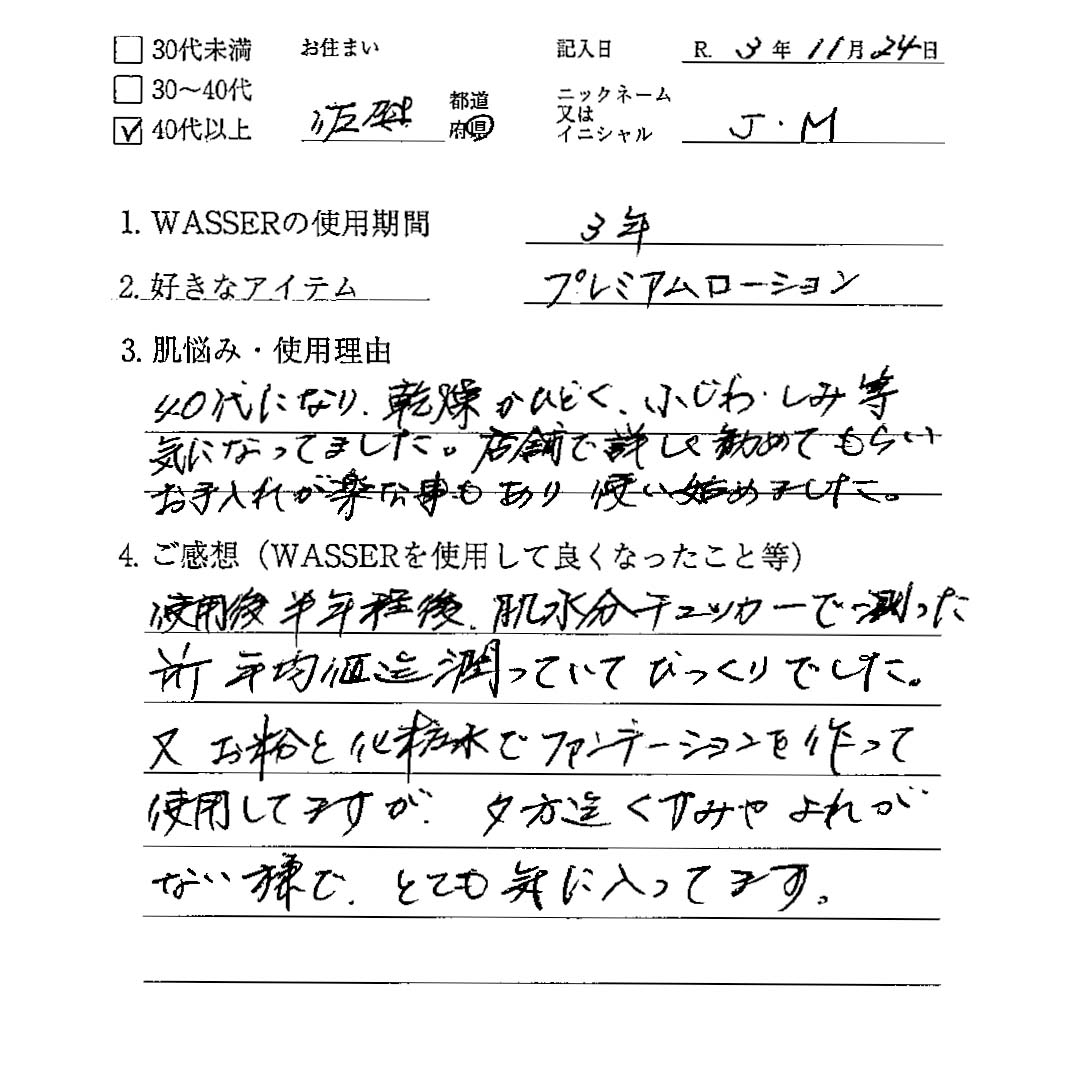 30代未満 お住まい 記入日 R. 3年 11月 24日
30〜40代
40代以上 佐賀 都道府県 ニックネーム又はイニシャル J・M
1. WASSERの使用期間 3年
2. 好きなアイテム プレミアムローション
3. 肌悩み・使用理由
40代になり、乾燥がひどく、小じわ・しみ等
気になってました。店舗で詳しく勧めてもらい
お手入れが楽な事もあり 使い始めました。
4. ご感想（WASSERを使用して良くなったこと等）
使用後半年程後、肌水分チェッカーで測った
所 平均値迄潤っていてびっくりでした。
又 お粉と化粧水でファンデーションを作って
使用してますが、夕方迄くすみやよれが
ない様で、とても気に入ってます。